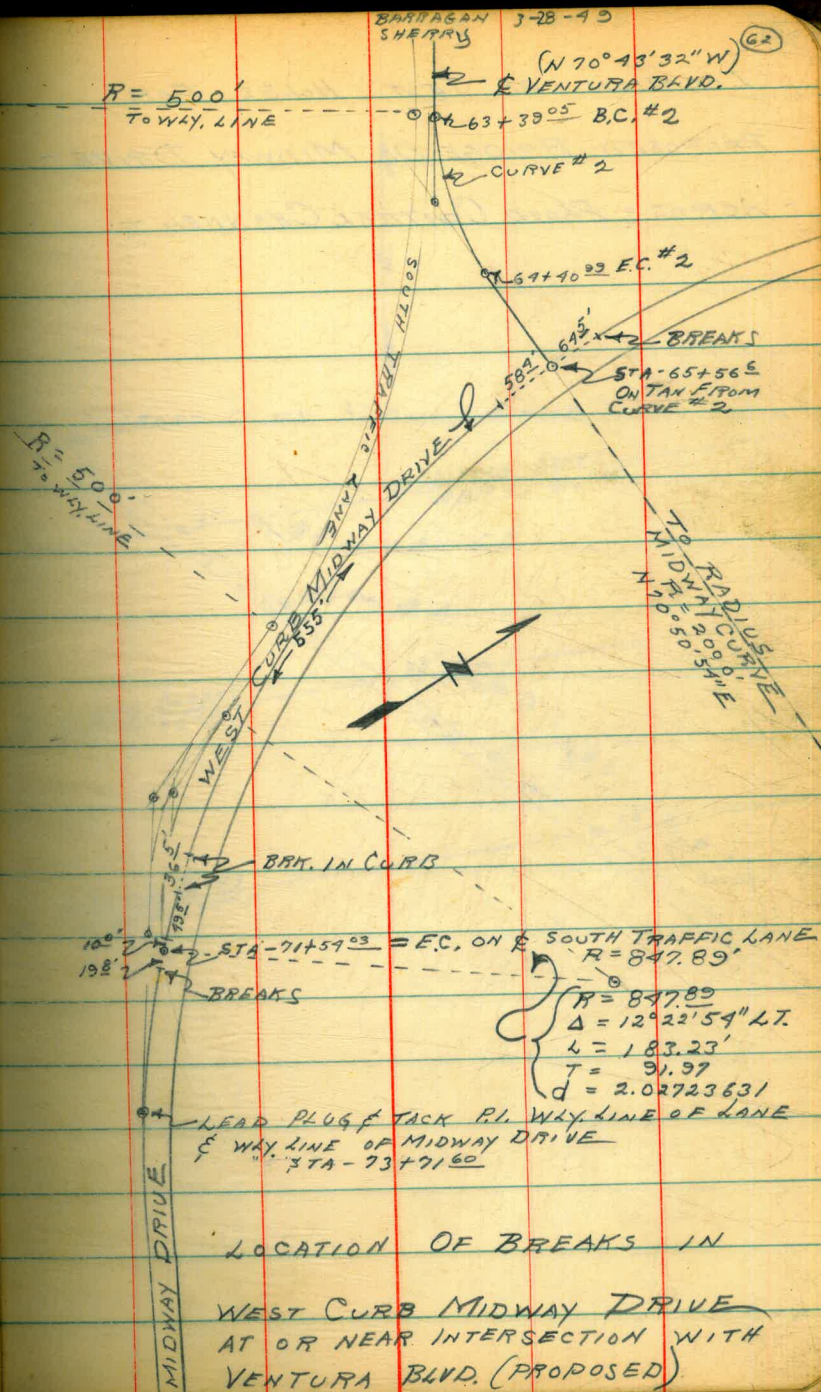 BARRAGAN 3-28-49
SHERRY
62
(N 70°43'32" W)
℄ VENTURA BLVD.
R = 500'
TO WLY. LINE
63+39 05 B.C. #2
CURVE #2
64+40 99 E.C. #2
SOUTH TRAFFIC LANE
64 5'
BREAKS
58 4'
STA-65+56 6
ON TAN FROM
CURVE #2
R = 500'
TO WLY. LINE
WEST CURB MIDWAY DRIVE
555'
TO RADIUS
MIDWAY CURVE
R = 2090.0'
N 70°50'54" E
N
36 5'
BRK. IN CURB
10 0'
STA-71+54 03 = E.C. ON ℄ SOUTH TRAFFIC LANE
R = 847.89'
19 8'
BREAKS
R = 847.89
Δ = 12°22'54" LT.
L = 183.23'
T = 91.97
d = 2.02723631
LEAD PLUG & TACK P.I. WLY. LINE OF LANE
& WLY. LINE OF MIDWAY DRIVE
STA-73+71 60
MIDWAY DRIVE
LOCATION OF BREAKS IN
WEST CURB MIDWAY DRIVE
AT OR NEAR INTERSECTION WITH
VENTURA BLVD. (PROPOSED)